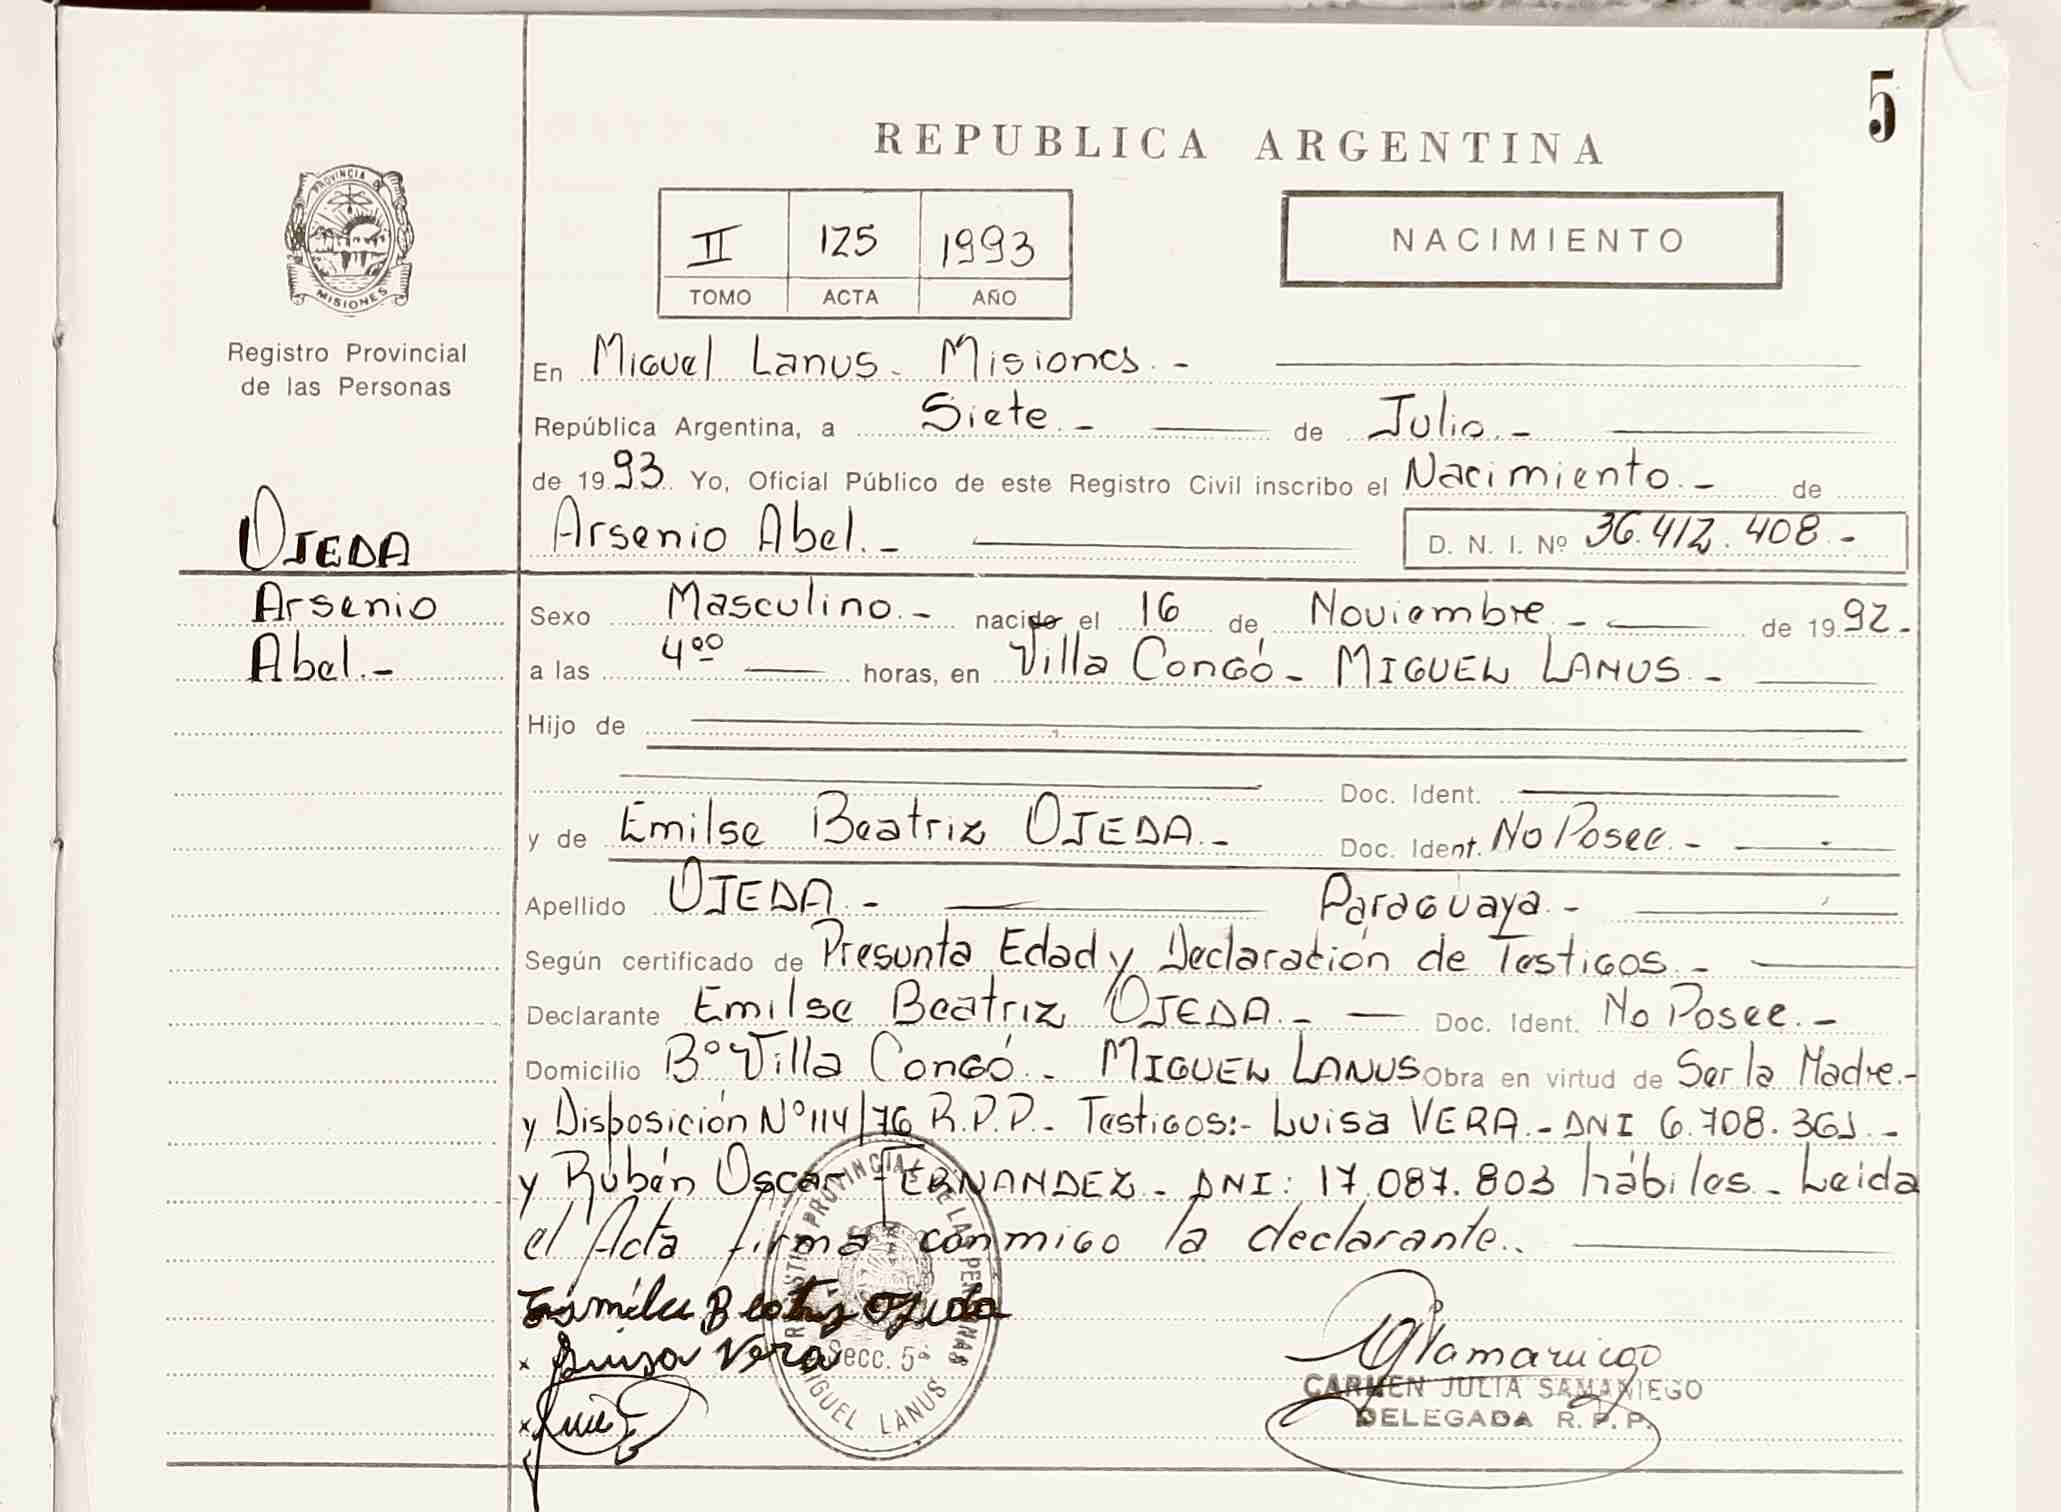 5
REPUBLICA ARGENTINA
PROVINCIA DE
MISIONES
Registro Provincial
de las Personas
II 125 1993
TOMO ACTA AÑO
NACIMIENTO
En Miguel Lanus - Misiones. -
República Argentina, a Siete. - de Julio. -
de 1993. Yo, Oficial Público de este Registro Civil inscribo el Nacimiento. - de
OJEDA
Arsenio Abel. - D. N. I. Nº 36.412.408. -
Arsenio
Abel. -
Sexo Masculino. - nacido el 16 de Noviembre - de 1992. -
a las 4ºº horas, en Villa Longó - MIGUEL LANUS. -
Hijo de
Doc. Ident.
y de Emilse Beatriz OJEDA. - Doc. Ident. No Posee. -
Apellido OJEDA. - Paraguaya. -
Según certificado de Presunta Edad y Declaración de Testigos. -
Declarante Emilse Beatriz OJEDA. - Doc. Ident. No Posee. -
Domicilio Bº Villa Longó. - MIGUEL LANUS Obra en virtud de Ser la Madre. -
y Disposición Nº 114/76 R.P.P. - Testigos:- Luisa VERA. - DNI 6.708.361. -
y Rubén Oscar FERNANDEZ - DNI: 17.087.803 hábiles. - Leida
el Acta firma conmigo la declarante..
Beatriz Ojeda
x Luisa Vera
REGISTRO PROVINCIAL DE LAS PERSONAS
Secc. 5ª
MIGUEL LANUS
CJSamaniego
CARMEN JULIA SAMANIEGO
DELEGADA R. P. P.